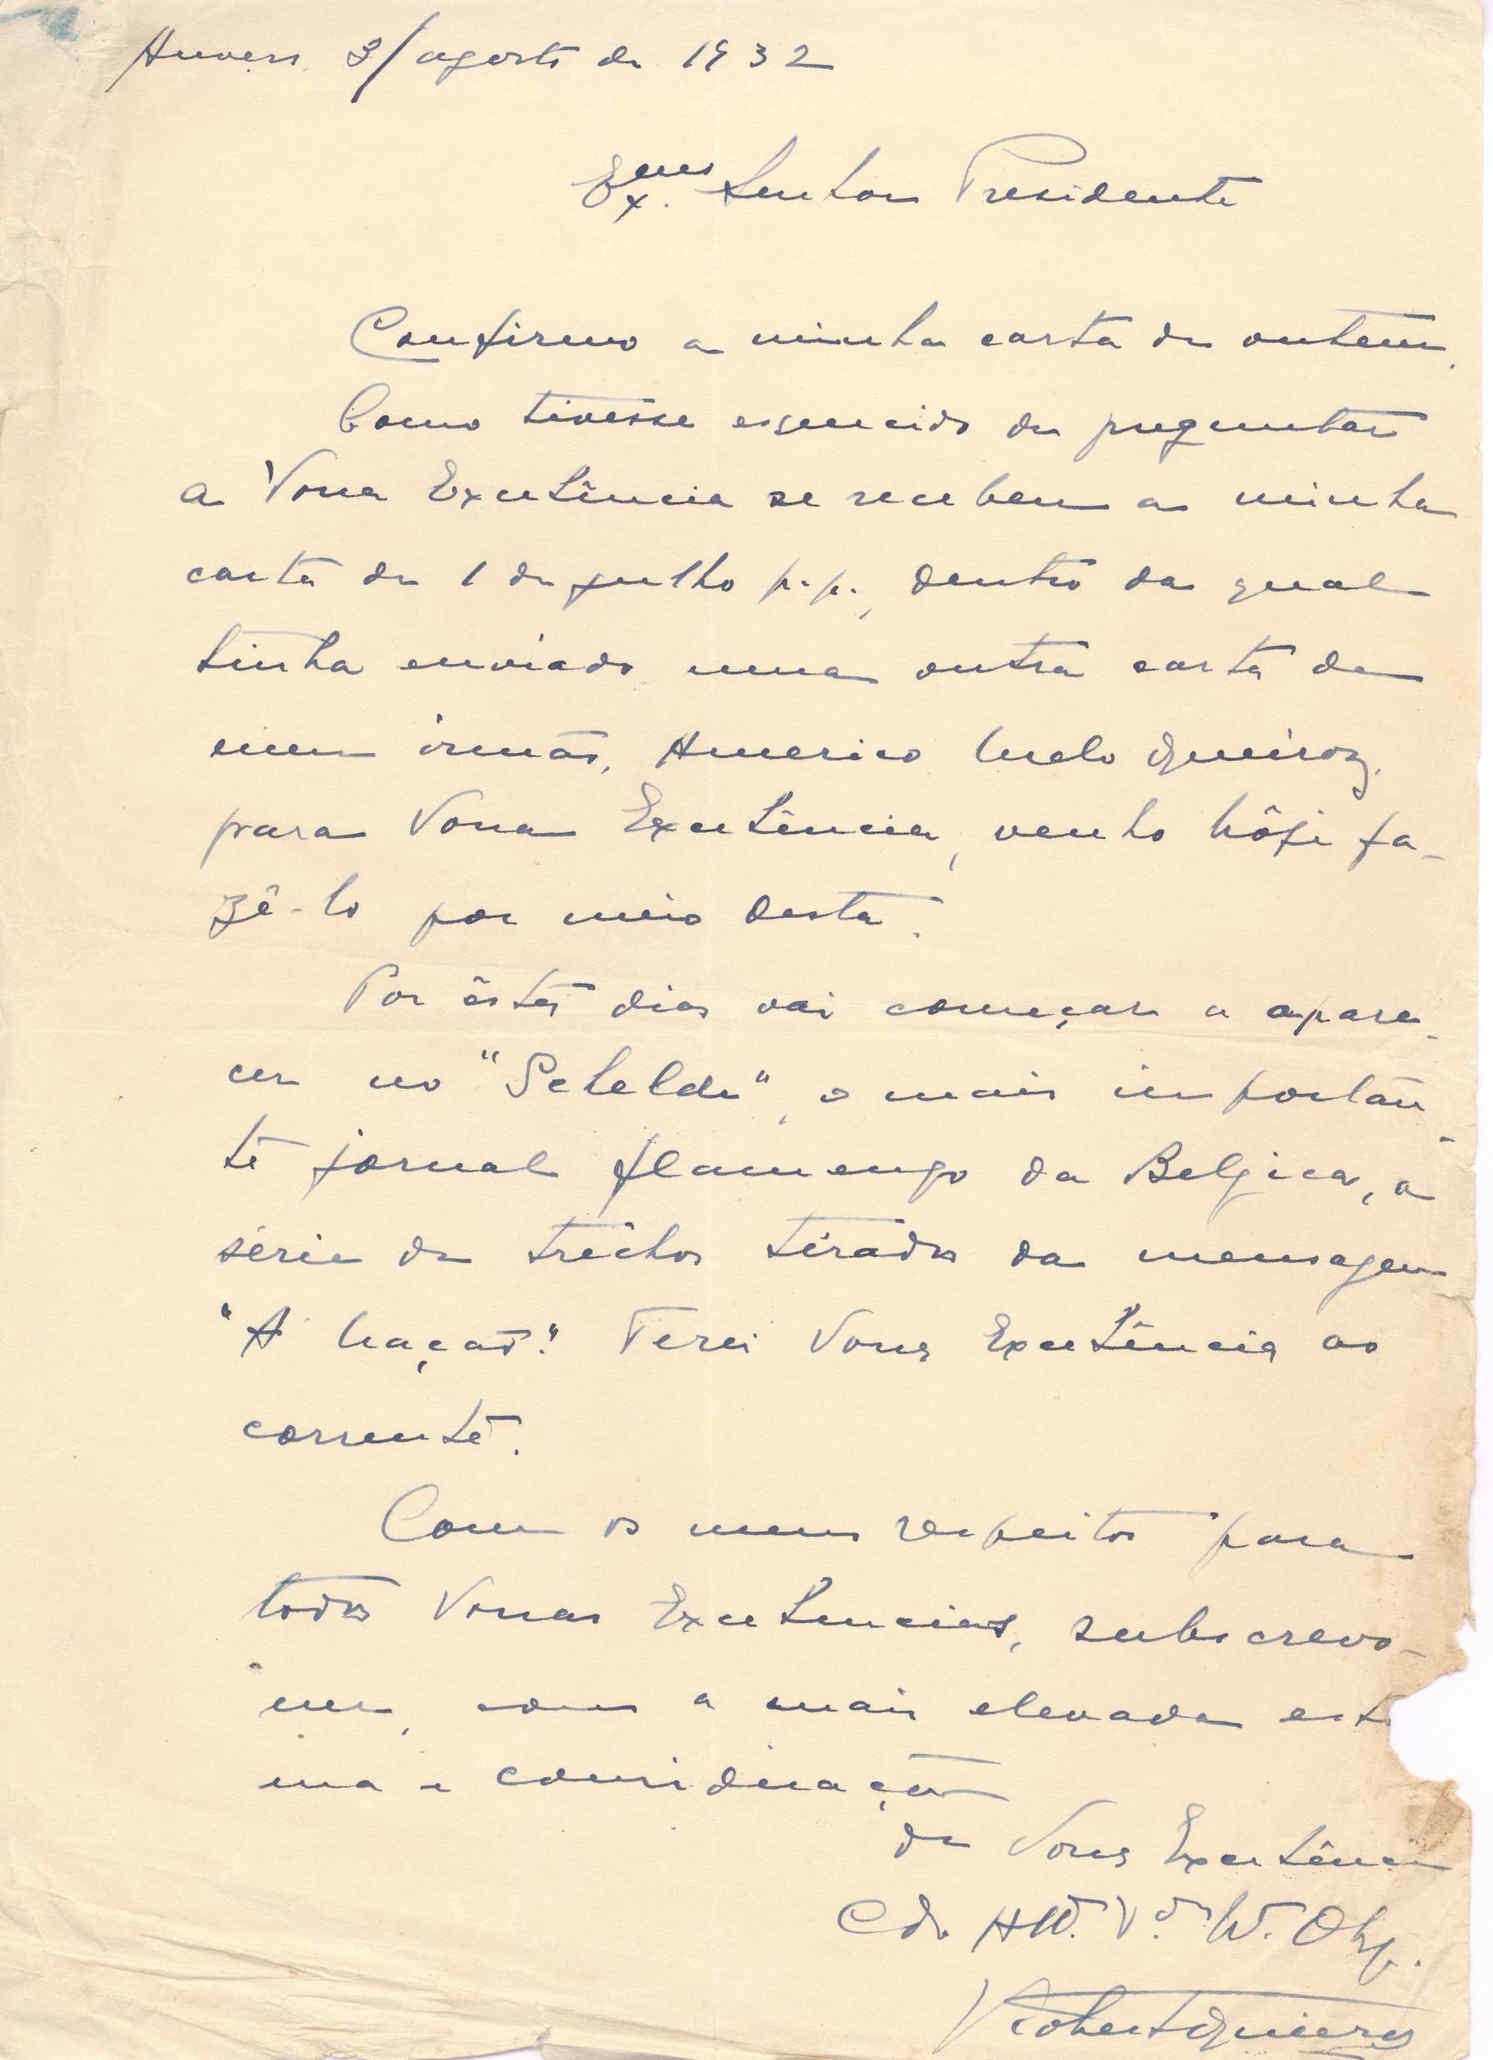 Anvers 3/agosto de 1932
Exmo Senhor Presidente
Confirmo a minha carta de ontem.
Como tivesse esquecido de preguntar
a Vossa Excelência se recebeu a minha
carta de 1 de julho p.p., dentro da qual
tinha enviado uma outra carta de
meu irmão, Americo Melo Queiroz,
para Vossa Excelência, venho hôje fa-
zê-lo por meio desta.
Por êstes dias vai começar a apare-
cer no "Schelde", o mais importan-
te jornal flamengo da Belgica, a
série de trêchos tirados da mensagem
"A Nação". Terei Vossa Excelência ao
corrente.
Com os meus respeitos para
todas Vossas Excelencias, subscrevo-
me, com a mais elevada esti
ma e consideração
de Vossa Excelência
Cdo Attº. Vdr. Obg.
Queiroz